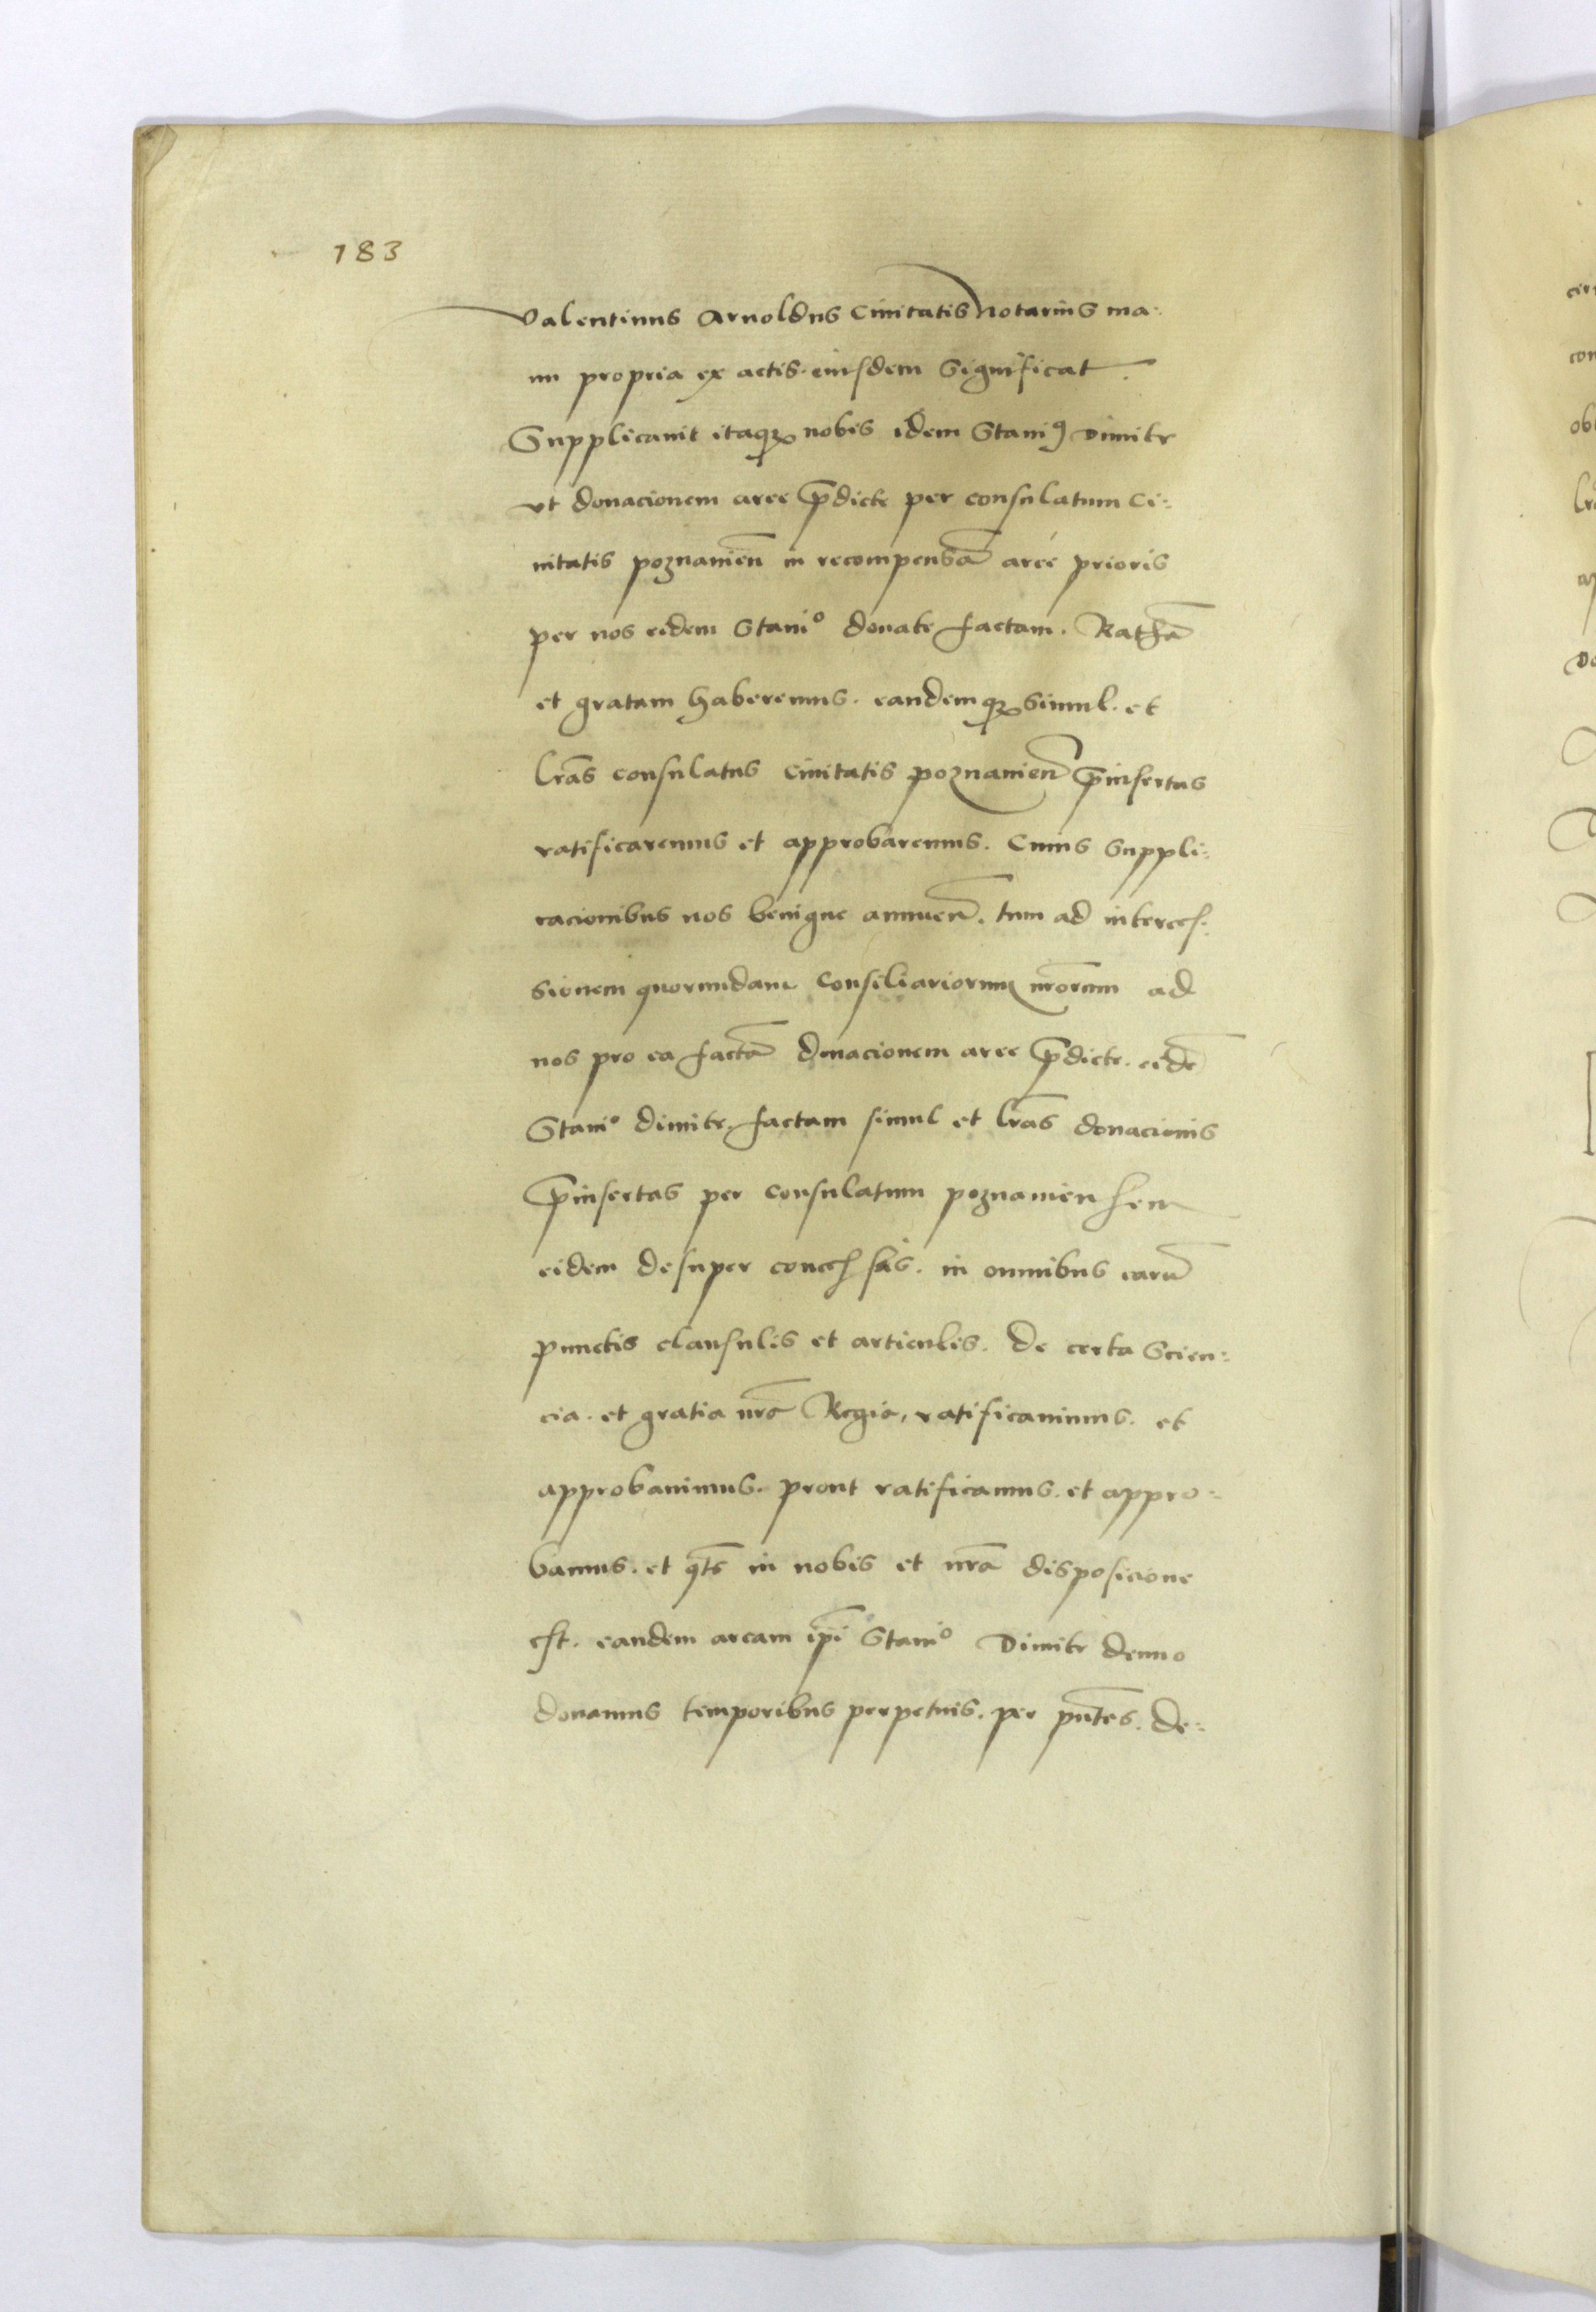 183
Valentinus Arnoldus Civitatis Notarius ma:
nu propria ex actis eiusdem significat.
Supplicavit itaqꝫ nobis idem Staniꝰ Dimitr
ut donacionem aree p̄dicte per consulatum Ci:
vitatis poznanień in recompensā aree prioris
per nos eidem Stani° donate factam. Rathā
et gratam haberemus. eandemqꝫ simul. et
l̄ras consulatus Civitatis poznanień p̄insertas
ratificaremus et approbaremus. Cuius suppli:
cacionibus nos benigne annueñ. tum ad interces:
sionem quorundam Consiliariorum nr̄orum ad
nos pro ea factā donacionem aree p̄dicte. eidē
Stani° Dimitr. factam simul et l̄ras donacionis
p̄insertas per consulatum poznaniensem
eidem desuper concessas. in omnibus earū
punctis clausulis et articulis. De certa scien:
cia. et gratia nr̄a Regia, ratificavimus. et
approbavimus. prout ratificamus. et appro:
bamus. et q̄ts in nobis et nr̄a disposicione
est. eandem aream ip̄i Stani° Dimitr denuo
donamus temporibus perpetuis. per pñtes. De: